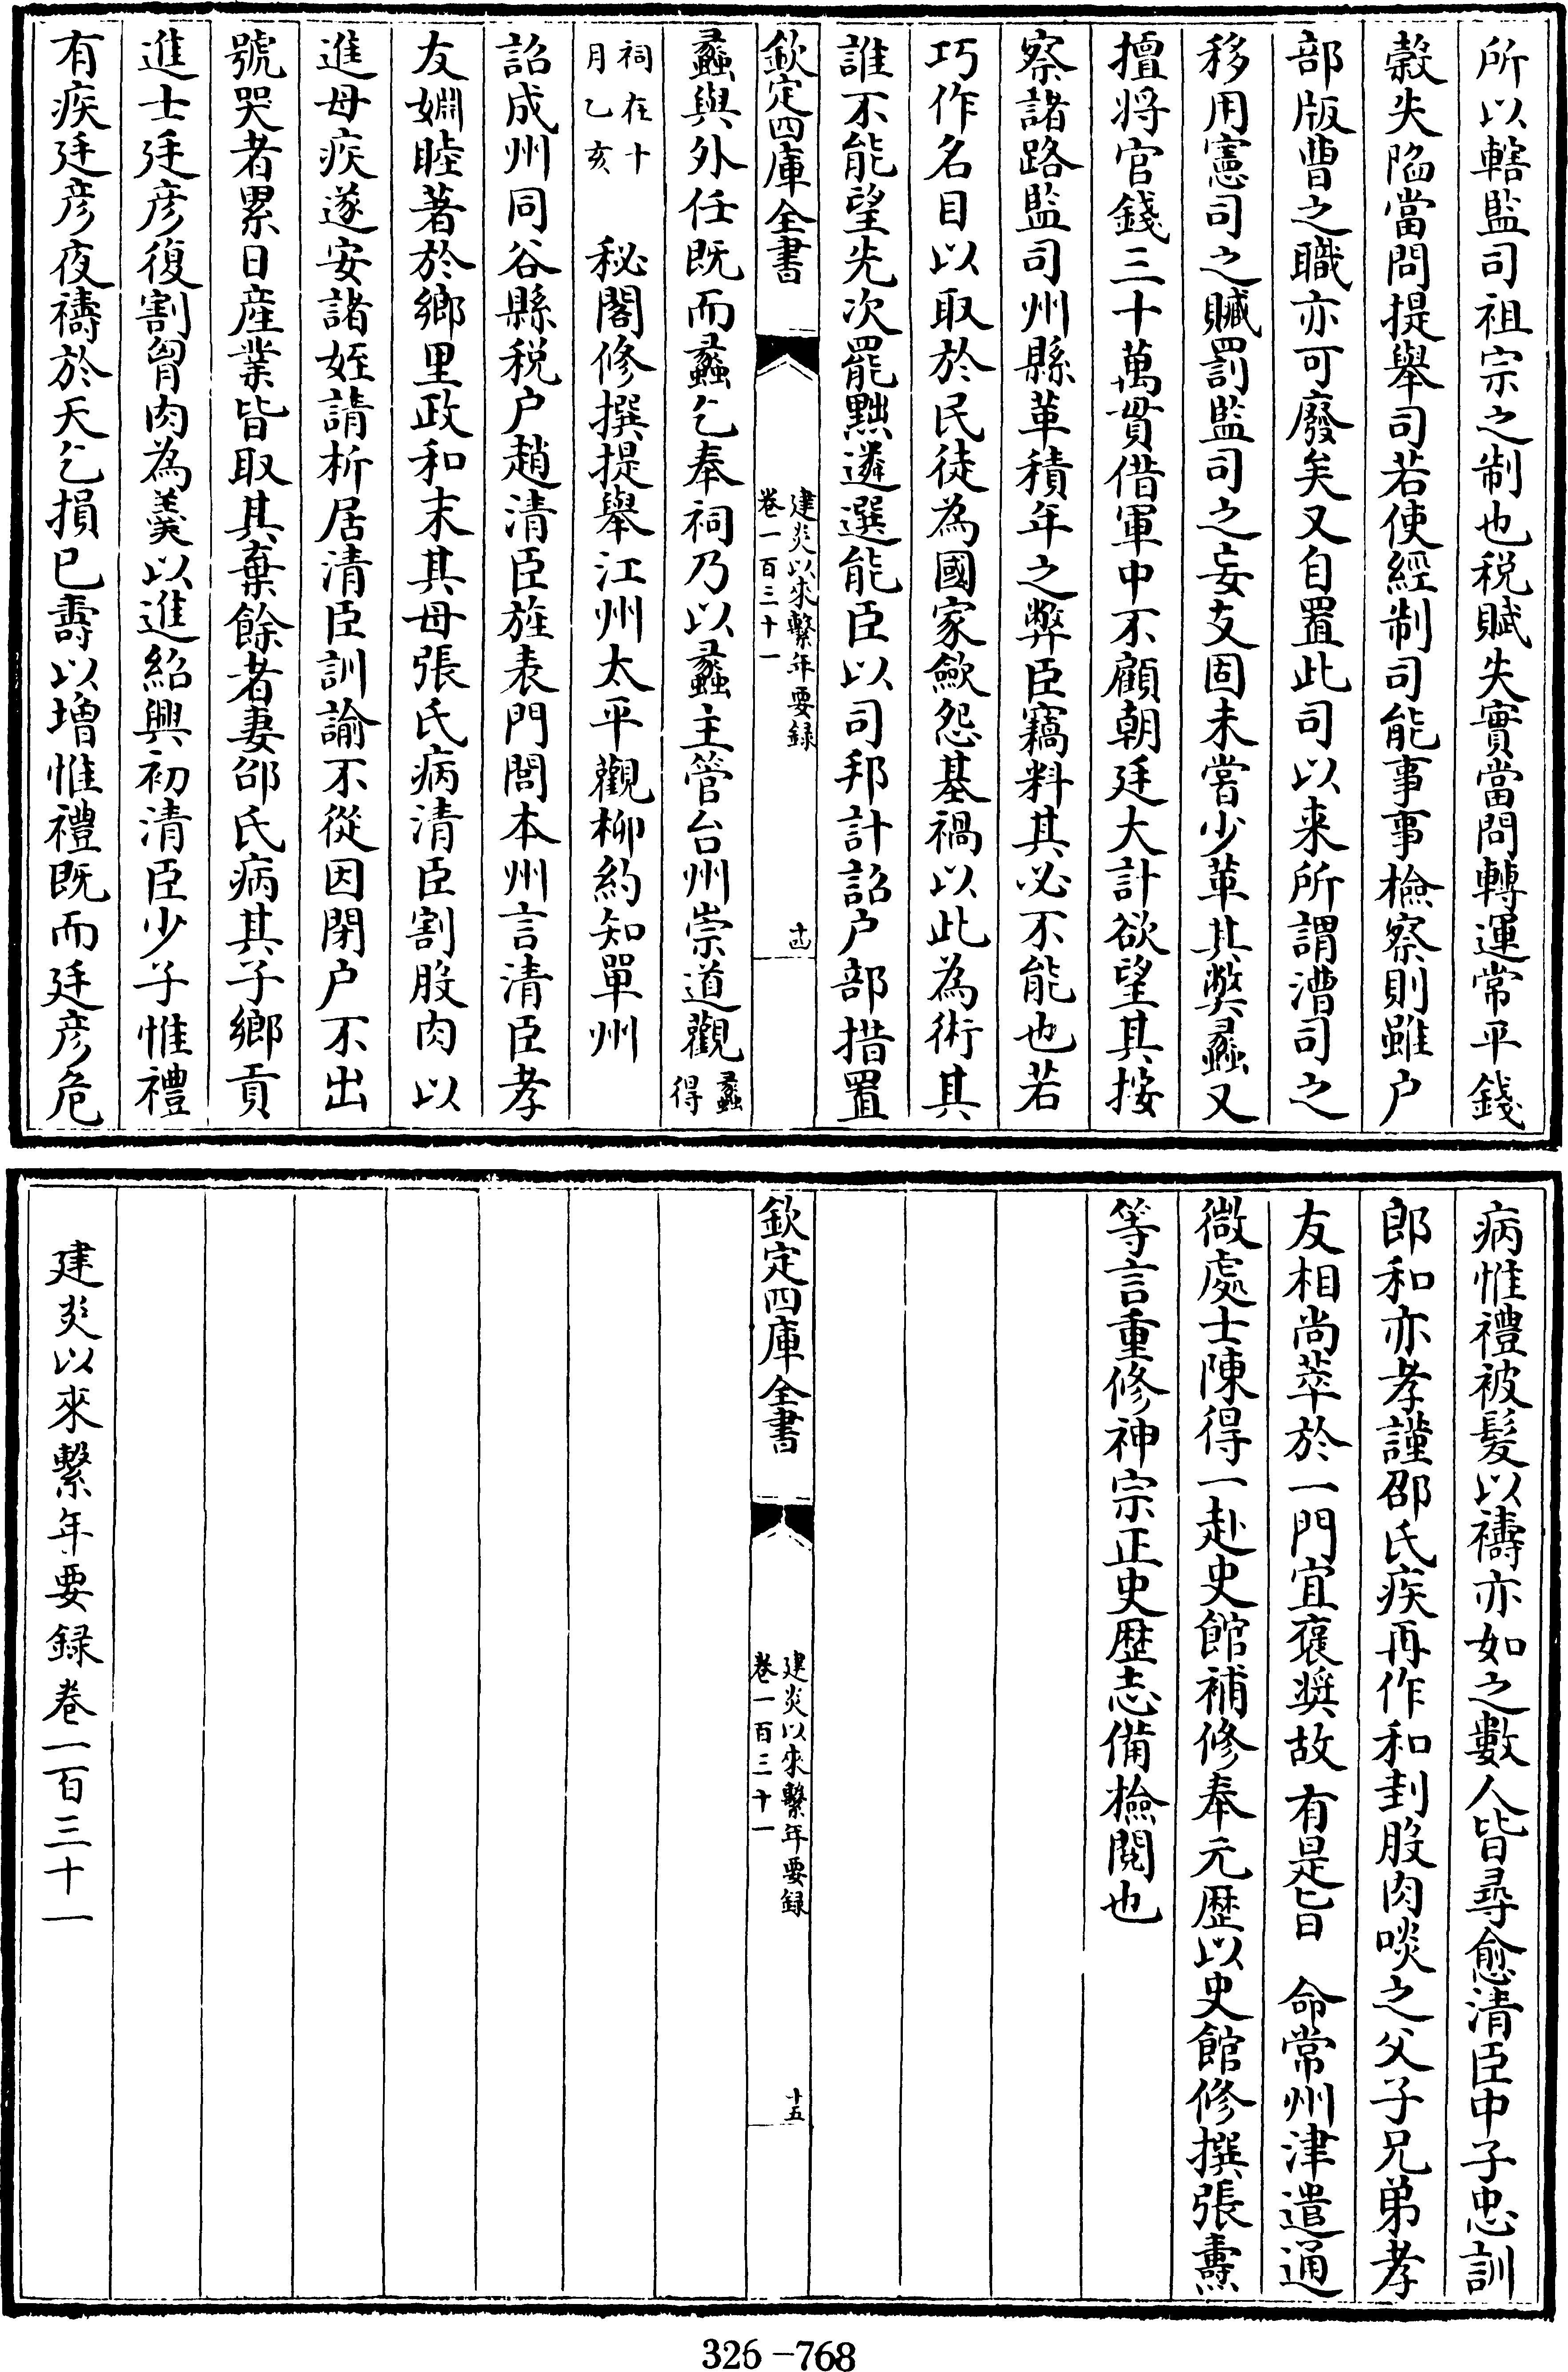 所以轄監司祖宗之制也税賦失實當問轉運常平錢
穀失陷當問提舉司若使經制司能事事檢察則雖户
部版曹之職亦可廢矣又自置此司以来所謂漕司之
移用憲司之贓罰監司之妄支固未嘗少革其弊蠡又
擅将官錢三十萬貫借軍中不顧朝廷大計欲望其按
察諸路監司州縣革積年之弊臣竊料其必不能也若
巧作名目以取於民徒為國家歛怨基禍以此為術其
誰不能望先次罷黜遴選能臣以司邦計詔户部措置
欽定四庫全書
建炎以來繫年要録
卷一百三十一
十四
蠡與外任既而蠡乞奉祠乃以蠡主管台州崇道觀蠡得
祠在十月乙亥 秘閣修撰提舉江州太平觀柳約知單州
詔成州同谷縣税户趙清臣旌表門閭本州言清臣孝
友婣睦著於鄉里政和末其母張氏病清臣割股肉以
進母疾遂安諸姪請析居清臣訓諭不從因閉户不出
號哭者累日産業皆取其棄餘者妻邵氏病其子鄉貢
進士廷彦復割胷肉為羹以進紹興初清臣少子惟禮
有疾廷彦夜禱於天乞損已壽以增惟禮既而廷彦危
病惟禮被髮以禱亦如之數人皆尋愈清臣中子忠訓
郎和亦孝謹邵氏疾再作和刲股肉啖之父子兄弟孝
友相尚萃於一門宜襃奨故有是旨 命常州津遣通
微處士陳得一赴史館補修奉元歴以史館修撰張燾
等言重修神宗正史歴志備檢閲也
欽定四庫全書
建炎以來繫年要録
卷一百三十一
十五
建炎以來繫年要録卷一百三十一
326-768